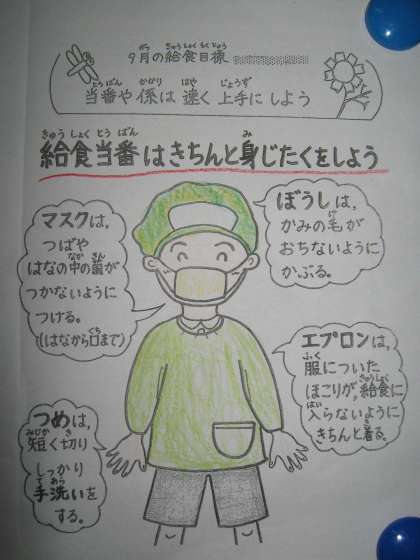 9月の給食目標
当番や係は速く上手にしよう
給食当番はきちんと身じたくをしよう
マスクは、
つばや
はなの中の菌が
つかないように
つける。
(はなから口まで)
ぼうしは、
かみの毛が
おちないように
かぶる。
エプロンは、
服についた
ほこりが、給食に
入らないように
きちんと着る。
つめは、
短く切り
しっかり
手洗いを
する。